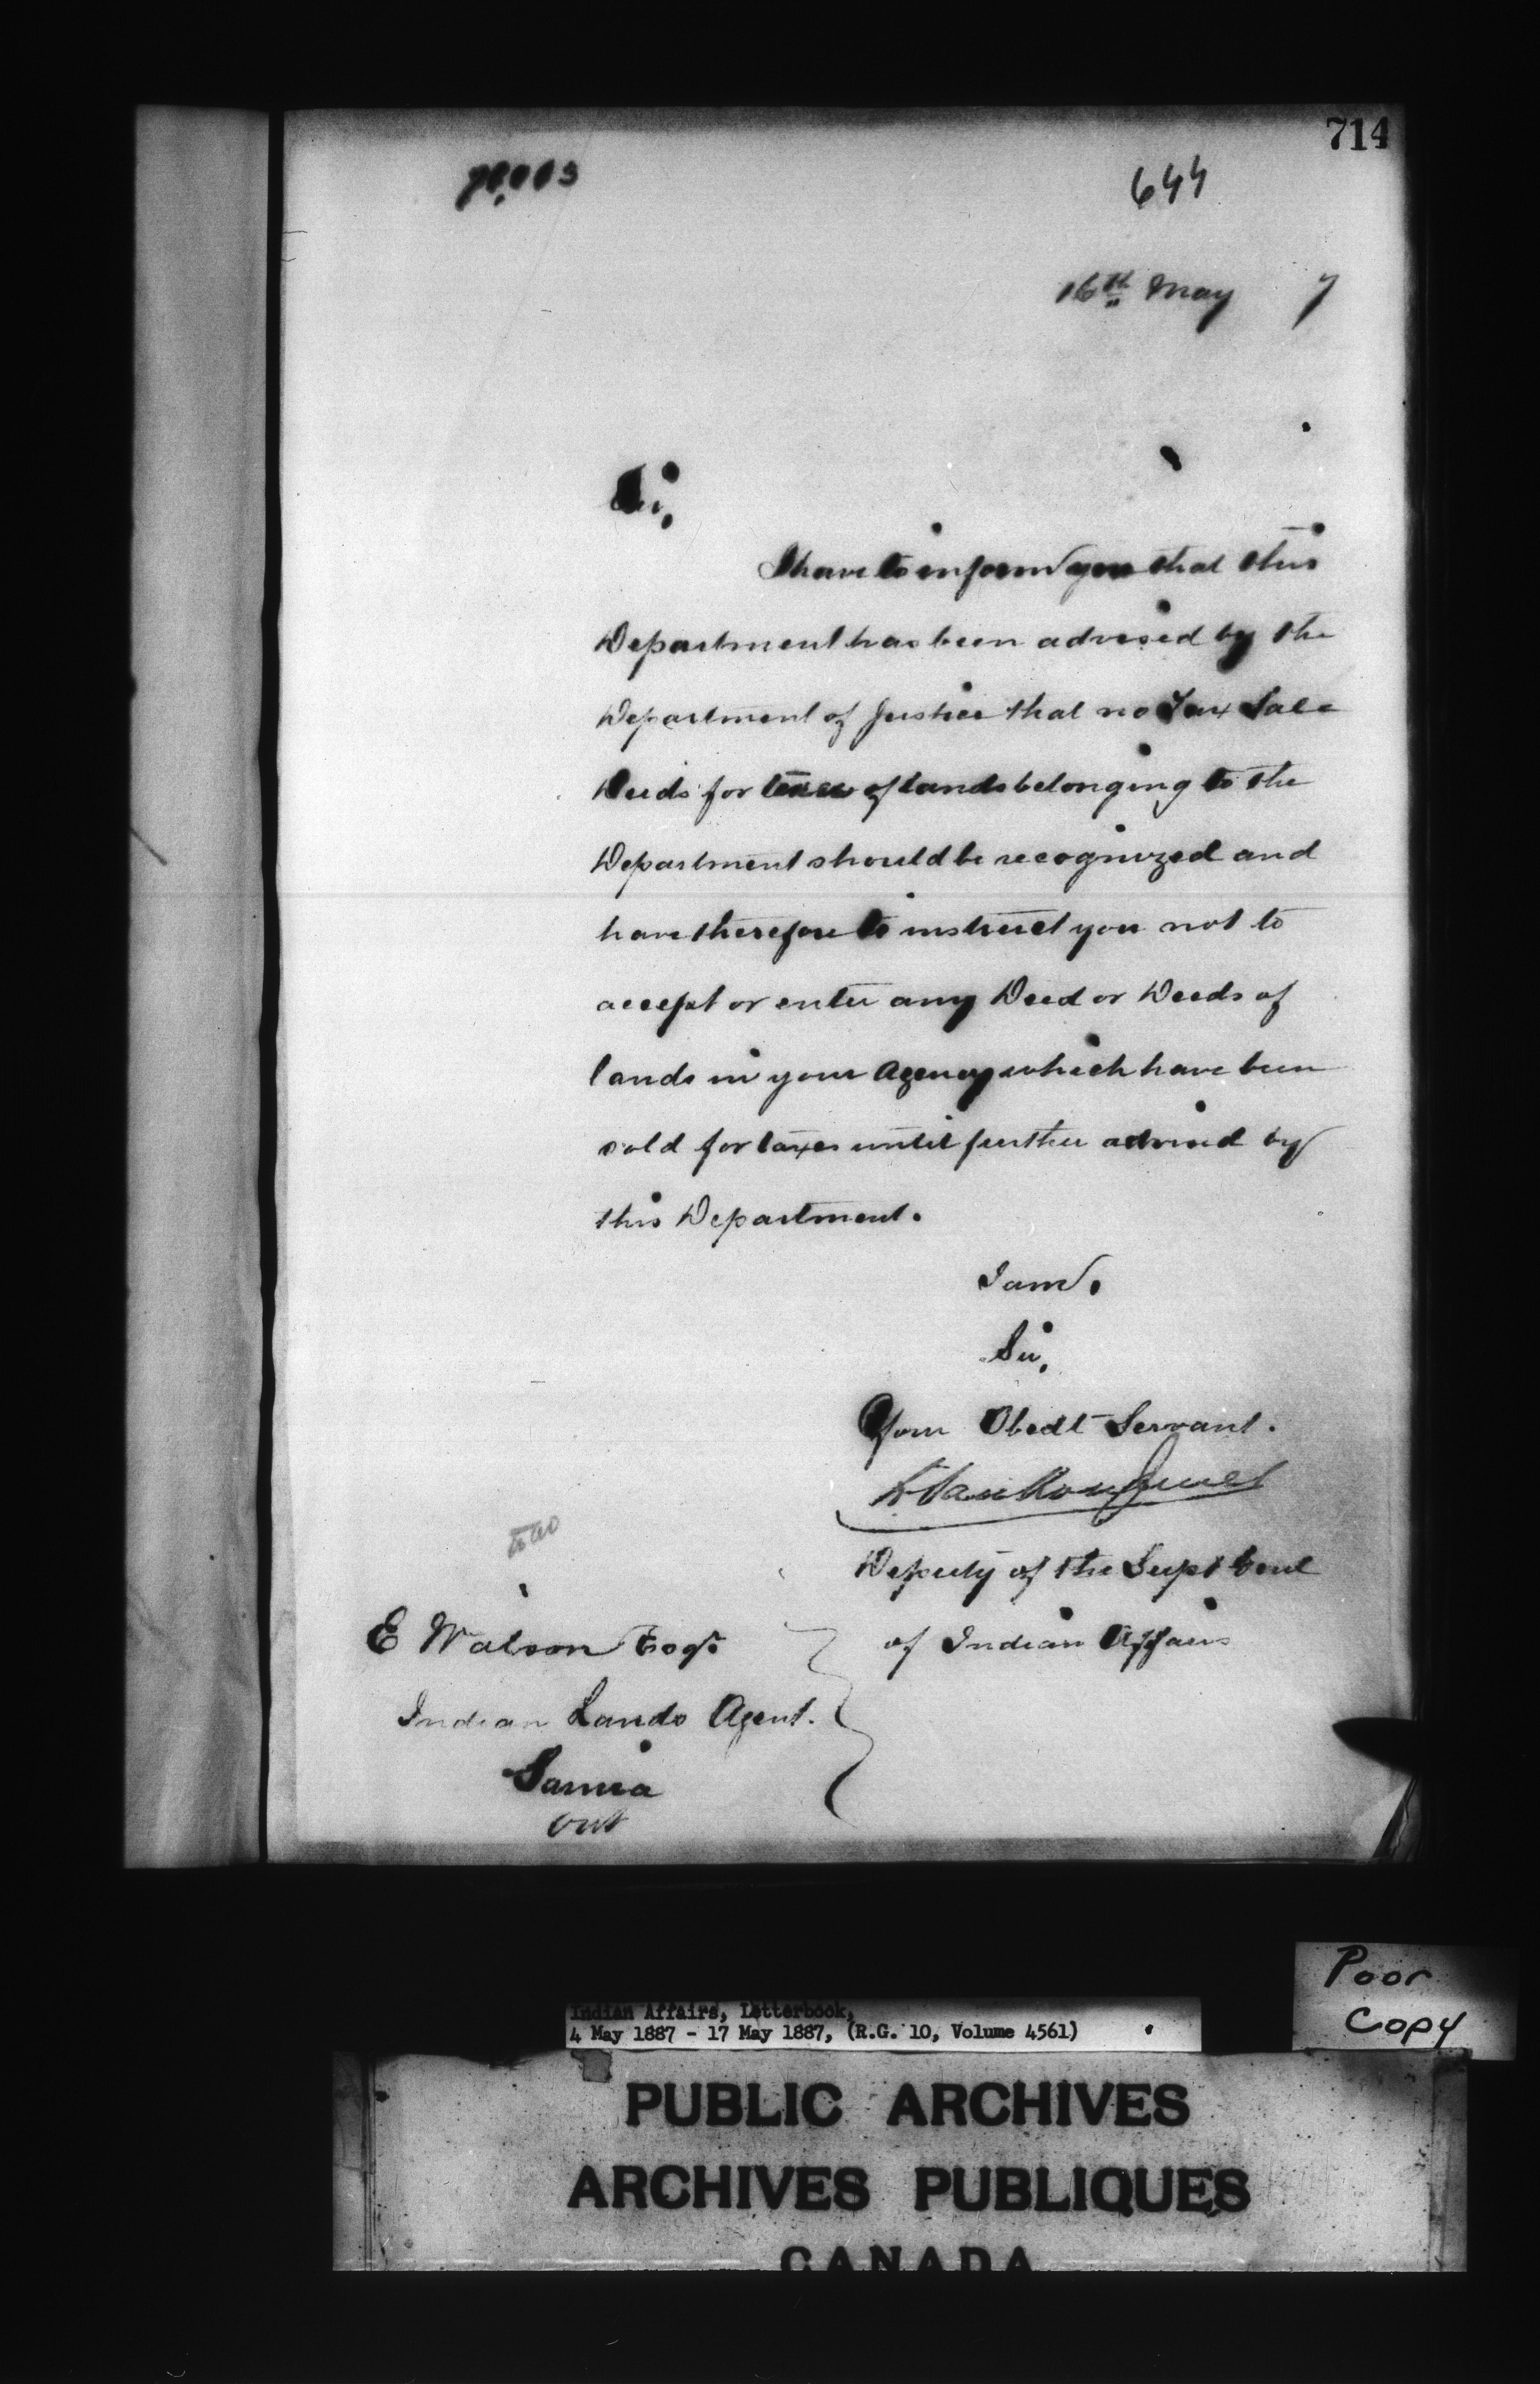 714
644
16th May 7
Sir,
I have to inform you that this
Department has been advised by the
Department of Justice that no Tax Sale
Deeds for taxes of lands belonging to the
Department should be recognized and
have therefore to instruct you not to
accept or enter any Deed or Deeds of
lands in your Agency which have been
sold for taxes until further advised by
this Department.
I am.
Sir,
Your Obedt Servant.
L Vankoughnet
Deputy of the Supt Genl
of Indian Affairs
E Watson Esqr
Indian Lands Agent.
Sarnia
Ont
Poor
Copy
Indian Affairs, Letterbook,
4 May 1887 - 17 May 1887, (R.G. 10, Volume 4561)
PUBLIC ARCHIVES
ARCHIVES PUBLIQUES
CANADA